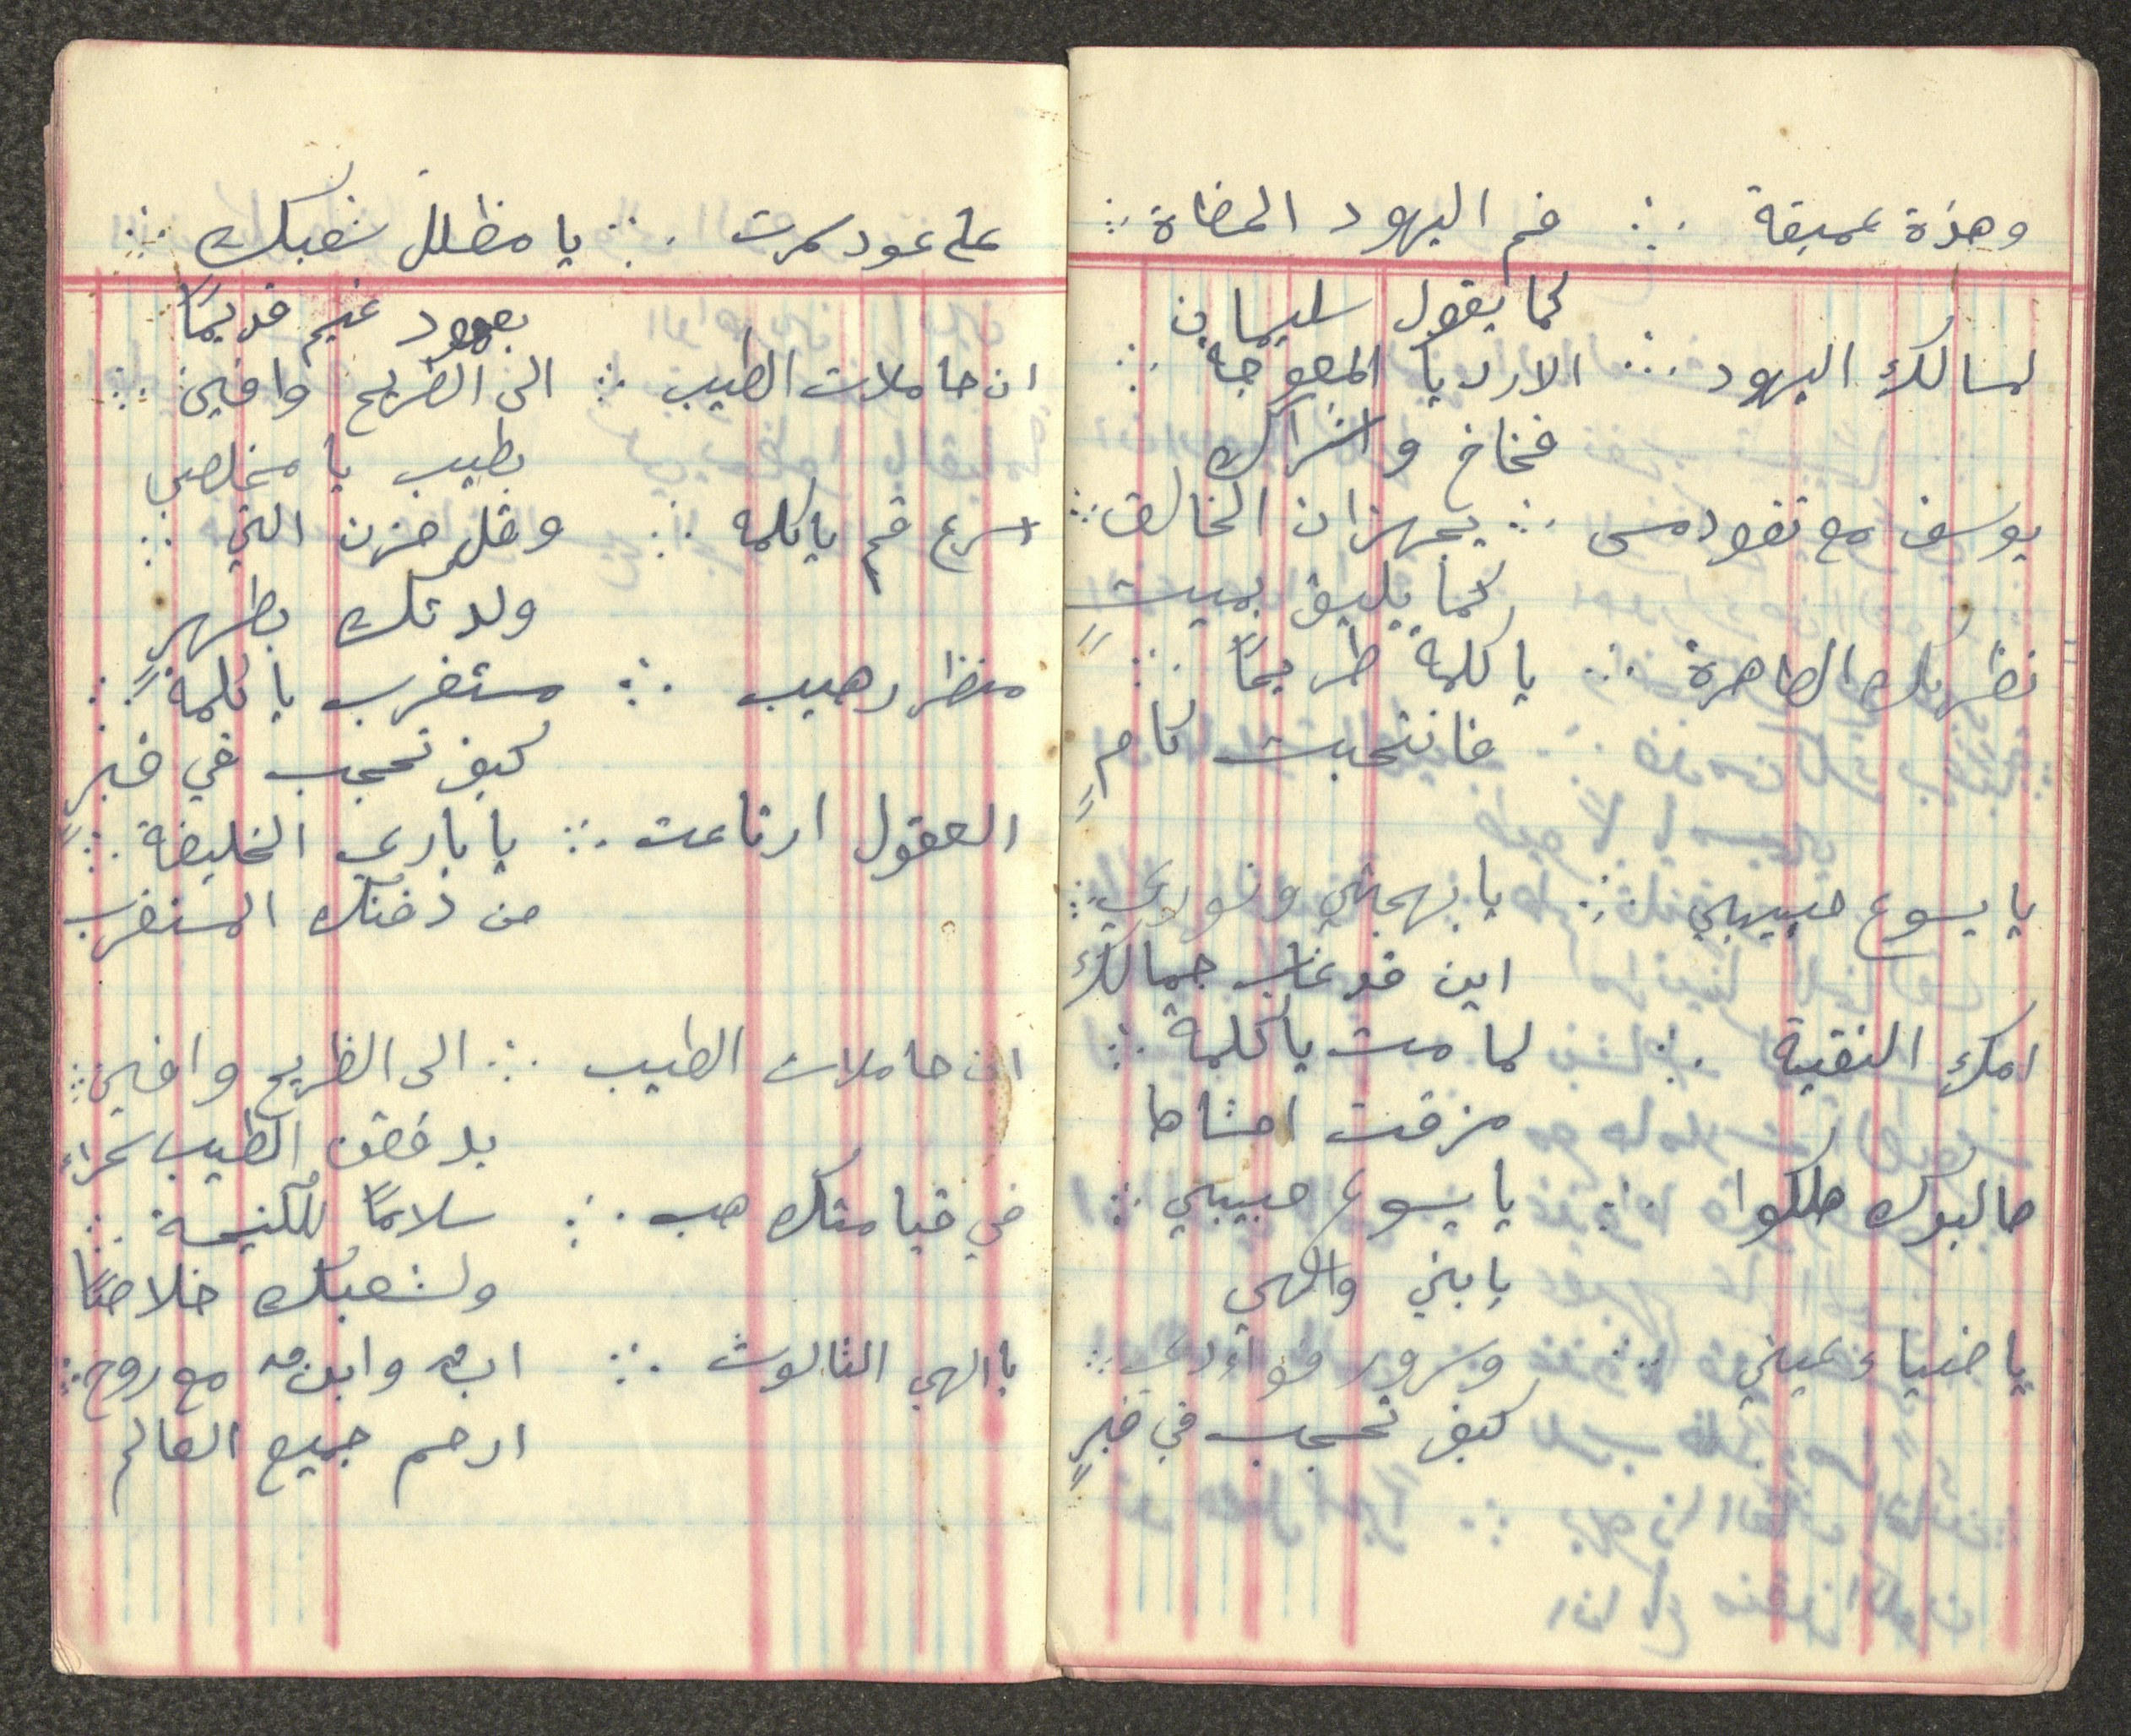 وهذة عميقة ∴ فم اليهود المضاة ∴
كما يقول سليمان
لمسالك اليهود ∴ الارديا المعوجه ∴
فخاخ واشراك
يوسف مع نقودمس ∴ يجهزان الخالق ∴
كما يليق بميت
نظرتك الطاهرة ∴ يا كلمة طريحًا ∴
فانتحبت كامٍ
يا يسوع حبيبي ∴ يا بهجتي ونوري ∴
اين قد غاب جمالك
امك النقية ∴ لما مت يا كلمة ∴
مزقت احشاها
صالبوك هلكوا ∴ يا يسوع حبيبي ∴
يا بني والهي
يا ضياء عيني ∴ وسرور فواءدي ∴
كيف تحجب في قبرٍ
على عود سمرت ∴ يا مظلل شعبك ∴
بعمود غيم قديمًا
ان حاملات الطيب ∴ الى الضريح وافين ∴
بطيب يا مخلصي
اسرع قم يا كلمه ∴ وحل حزن التي ∴
ولدتك بطهرٍ
منظر رهيب ∴ مستغرب يا كلمة ∴
كيف تحجب في قبرٍ
العقول ارتاعت ∴ يا باري الخليقة ∴
من دفنك المستغرب
ان حاملات الطيب ∴ الى الظريح وافين ∴
يدفقن الطيب سحراء
في قيامتك هب ∴ سلامًا للكنيسة ∴
ولشعبك خلاصًا
يا الهي الثالوث ∴ اب وابن مع روح ∴
ارحم جميع العالم